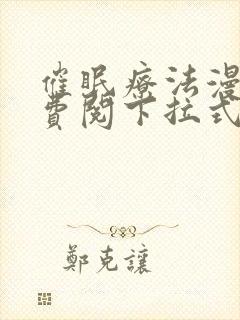 催眠療法漫
費閱下拉式
鄭克讓